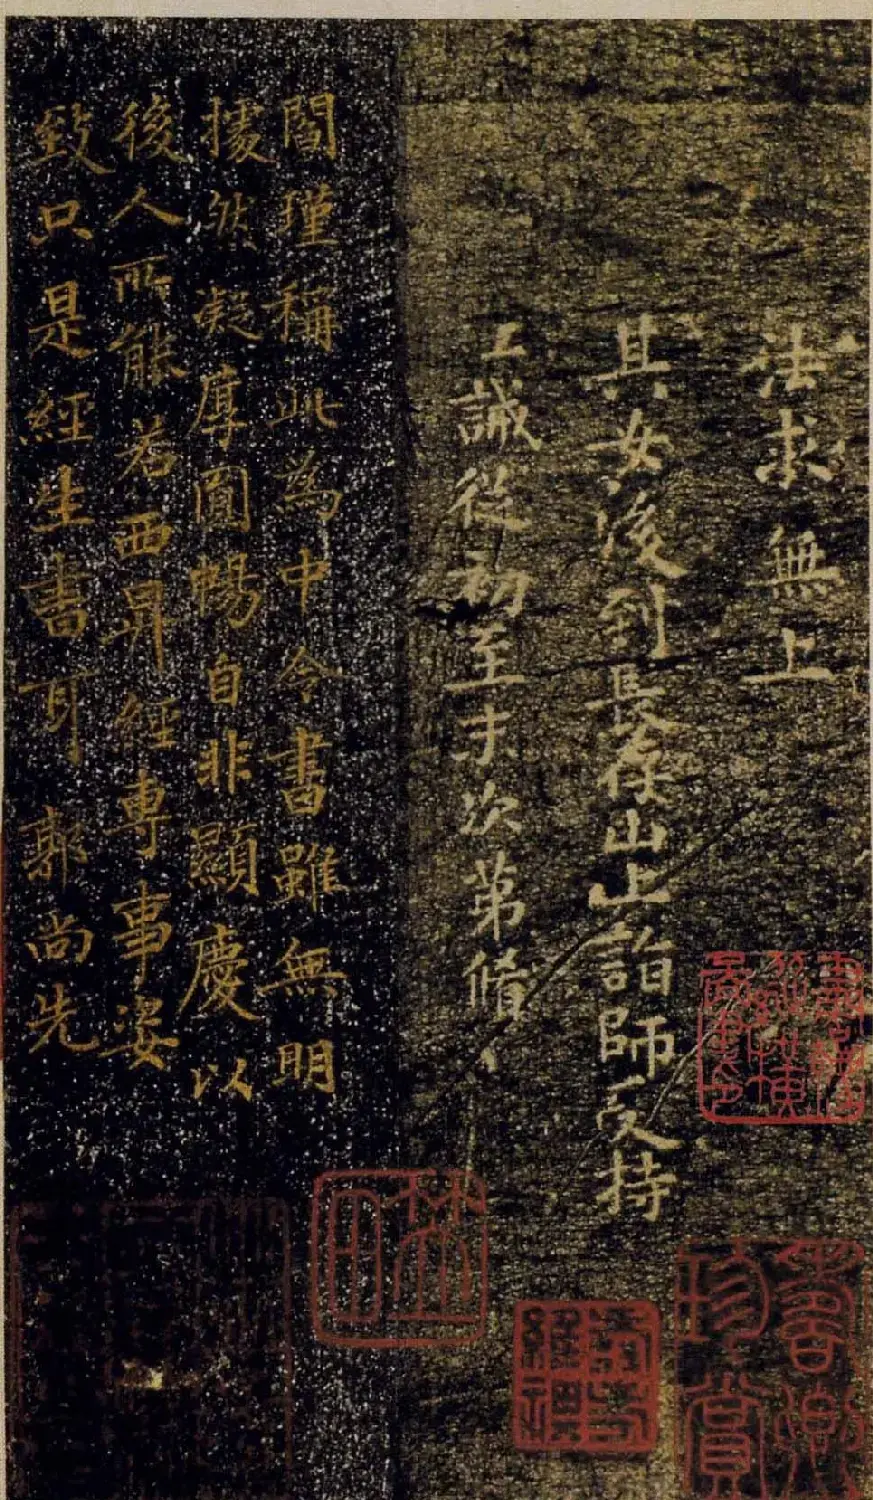 法求無上
其女後到長桑山上詣師受持
工誡從初至末次第脩
閻瑾稱此為中令書雖無明
據然凝厚圓暢自非顯慶以
後人所能若西昇經專事姿
致只是經生書耳郭尚先
珍賞